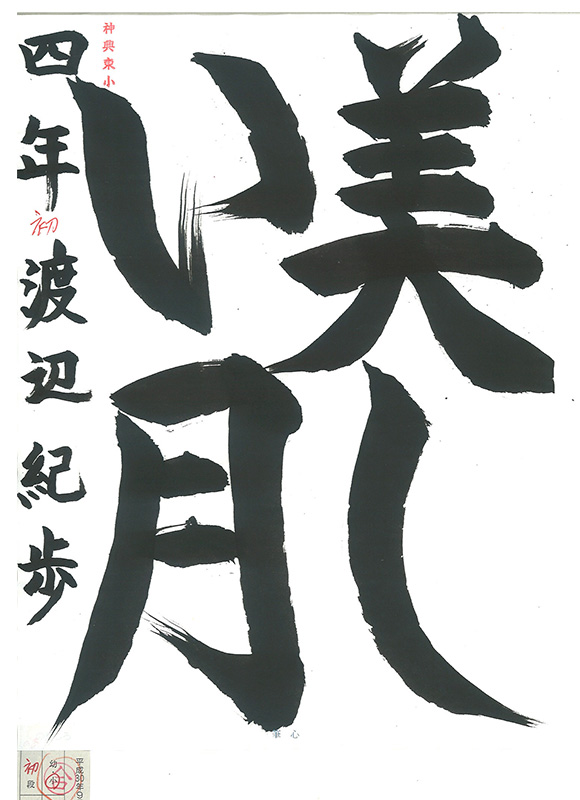 美し
い月
神興東小
四年
初
渡辺紀歩
心筆
平成30年9
幼・小
初
段